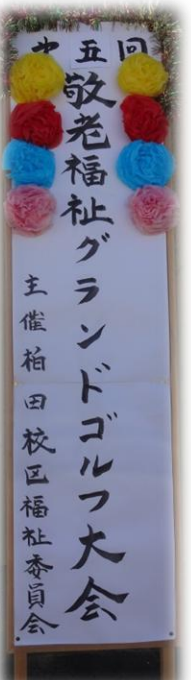 第五回
敬老福祉グランドゴルフ大会
主催柏田校区福祉委員会